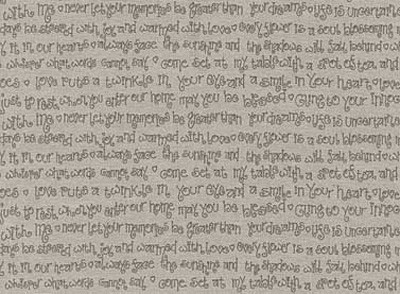 with me never let your memories be greater than your dreams life is uncertain
days be stressed with joy and warmed with love every flower is a soul blossoming in
it in our hearts always face the sunshine and the shadows will fall behind w
whisper what words cannot say come set at my table with a spot of tea, and
eyes love puts a twinkle in your eyes and a smile in your heart love
just to rest when you enter our home may you be blessed cling to your
with me never let your memories be greater than your dreams life is uncertain
days be stressed with joy and warmed with love every flower is a soul blossoming in
it in our hearts always face the sunshine and the shadows will fall behind w
whisper what words cannot say come set at my table with a spot of tea, and
eyes love puts a twinkle in your eyes and a smile in your heart love
just to rest when you enter our home may you be blessed cling to your
with me never let your memories be greater than your dreams life is uncertain
days be stressed with joy and warmed with love every flower is a soul blossoming in
it in our hearts always face the sunshine and the shadows will fall behind w
whisper what words cannot say come set at my table with a spot of tea, and